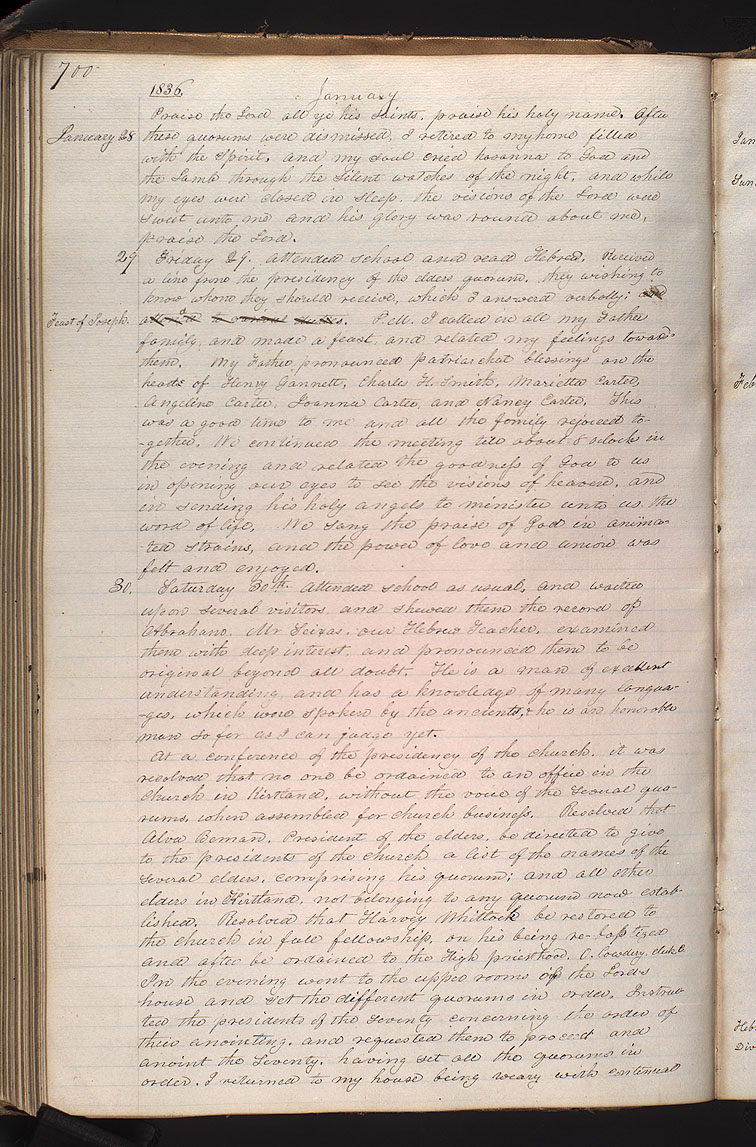 700
1836.
January
Praise the Lord all ye his saints, praise his holy name. After
January 28 these quorums were dismissed, I retired to my home filled
with the Spirit, and my soul cried hosanna to God and
the Lamb through the silent watches of the night; and while
my eyes were closed in sleep, the visions of the Lord were
sweet unto me and his glory was round about me,
praise the Lord.
29 Friday 29. Attended school and read Hebrew. Received
a line from the presidency of the elders quorum, they wishing to
know whom they should receive, which I answered verbally; and
Feast of Joseph attended to various duties. P.M. I called in all my Father
family, and made a feast, and related my feelings towards
them. My Father pronounced patriarchal blessings on the
heads of Henry Gannett, Charles H. Smith, Marietta Carter,
Angeline Carter, Joanna Carter, and Nancy Carter. This
was a good time to me and all the family rejoiced to-
-gether. We continued the meeting till about 8 oclock in
the evening and related the goodness of God to us
in opening our eyes to see the visions of heaven, and
in sending his holy angels to minister unto us the
word of life. We sang the praise of God in anima-
ted strains, and the power of love and union was
felt and enjoyed.
30. Saturday 30th. Attended school as usual, and waited
upon several visitors and shewed them the record of
Abraham. Mr Seixas, our Hebrew Teacher, examined
them with deep interest, and pronounced them to be
original beyond all doubt. He is a man of excellent
understanding, and has a knowledge of many langua-
-ges, which were spoken by the ancients, & he is an honorable
man so far as I can judge yet.
At a conference of the presidency of the church, it was
resolved that no one be ordained to an office in the
church in Kirtland, without the voice of the several quo-
rums, when assembled for church business. Resolved that
Alva Beman, President of the elders, be directed to give
to the presidents of the church a list of the names of the
several elders, comprising his quorum; and all other
elders in Kirtland, not belonging to any quorum now estab-
lished. Resolved that Harvey Whitlock be restored to
the church in full fellowship, on his being re-baptized
and after be ordained to the High priesthood. O. Cowdery, clerk
In the evening went to the upper rooms of the Lord's
house and set the different quorums in order. Instruc-
ted the presidents of the Seventy concerning the order of
their anointing, and requested them to proceed and
anoint the Seventy, having set all the quorums in
order, I returned to my house being weary with continual
Jan
Sun
Feb
Heb
Div